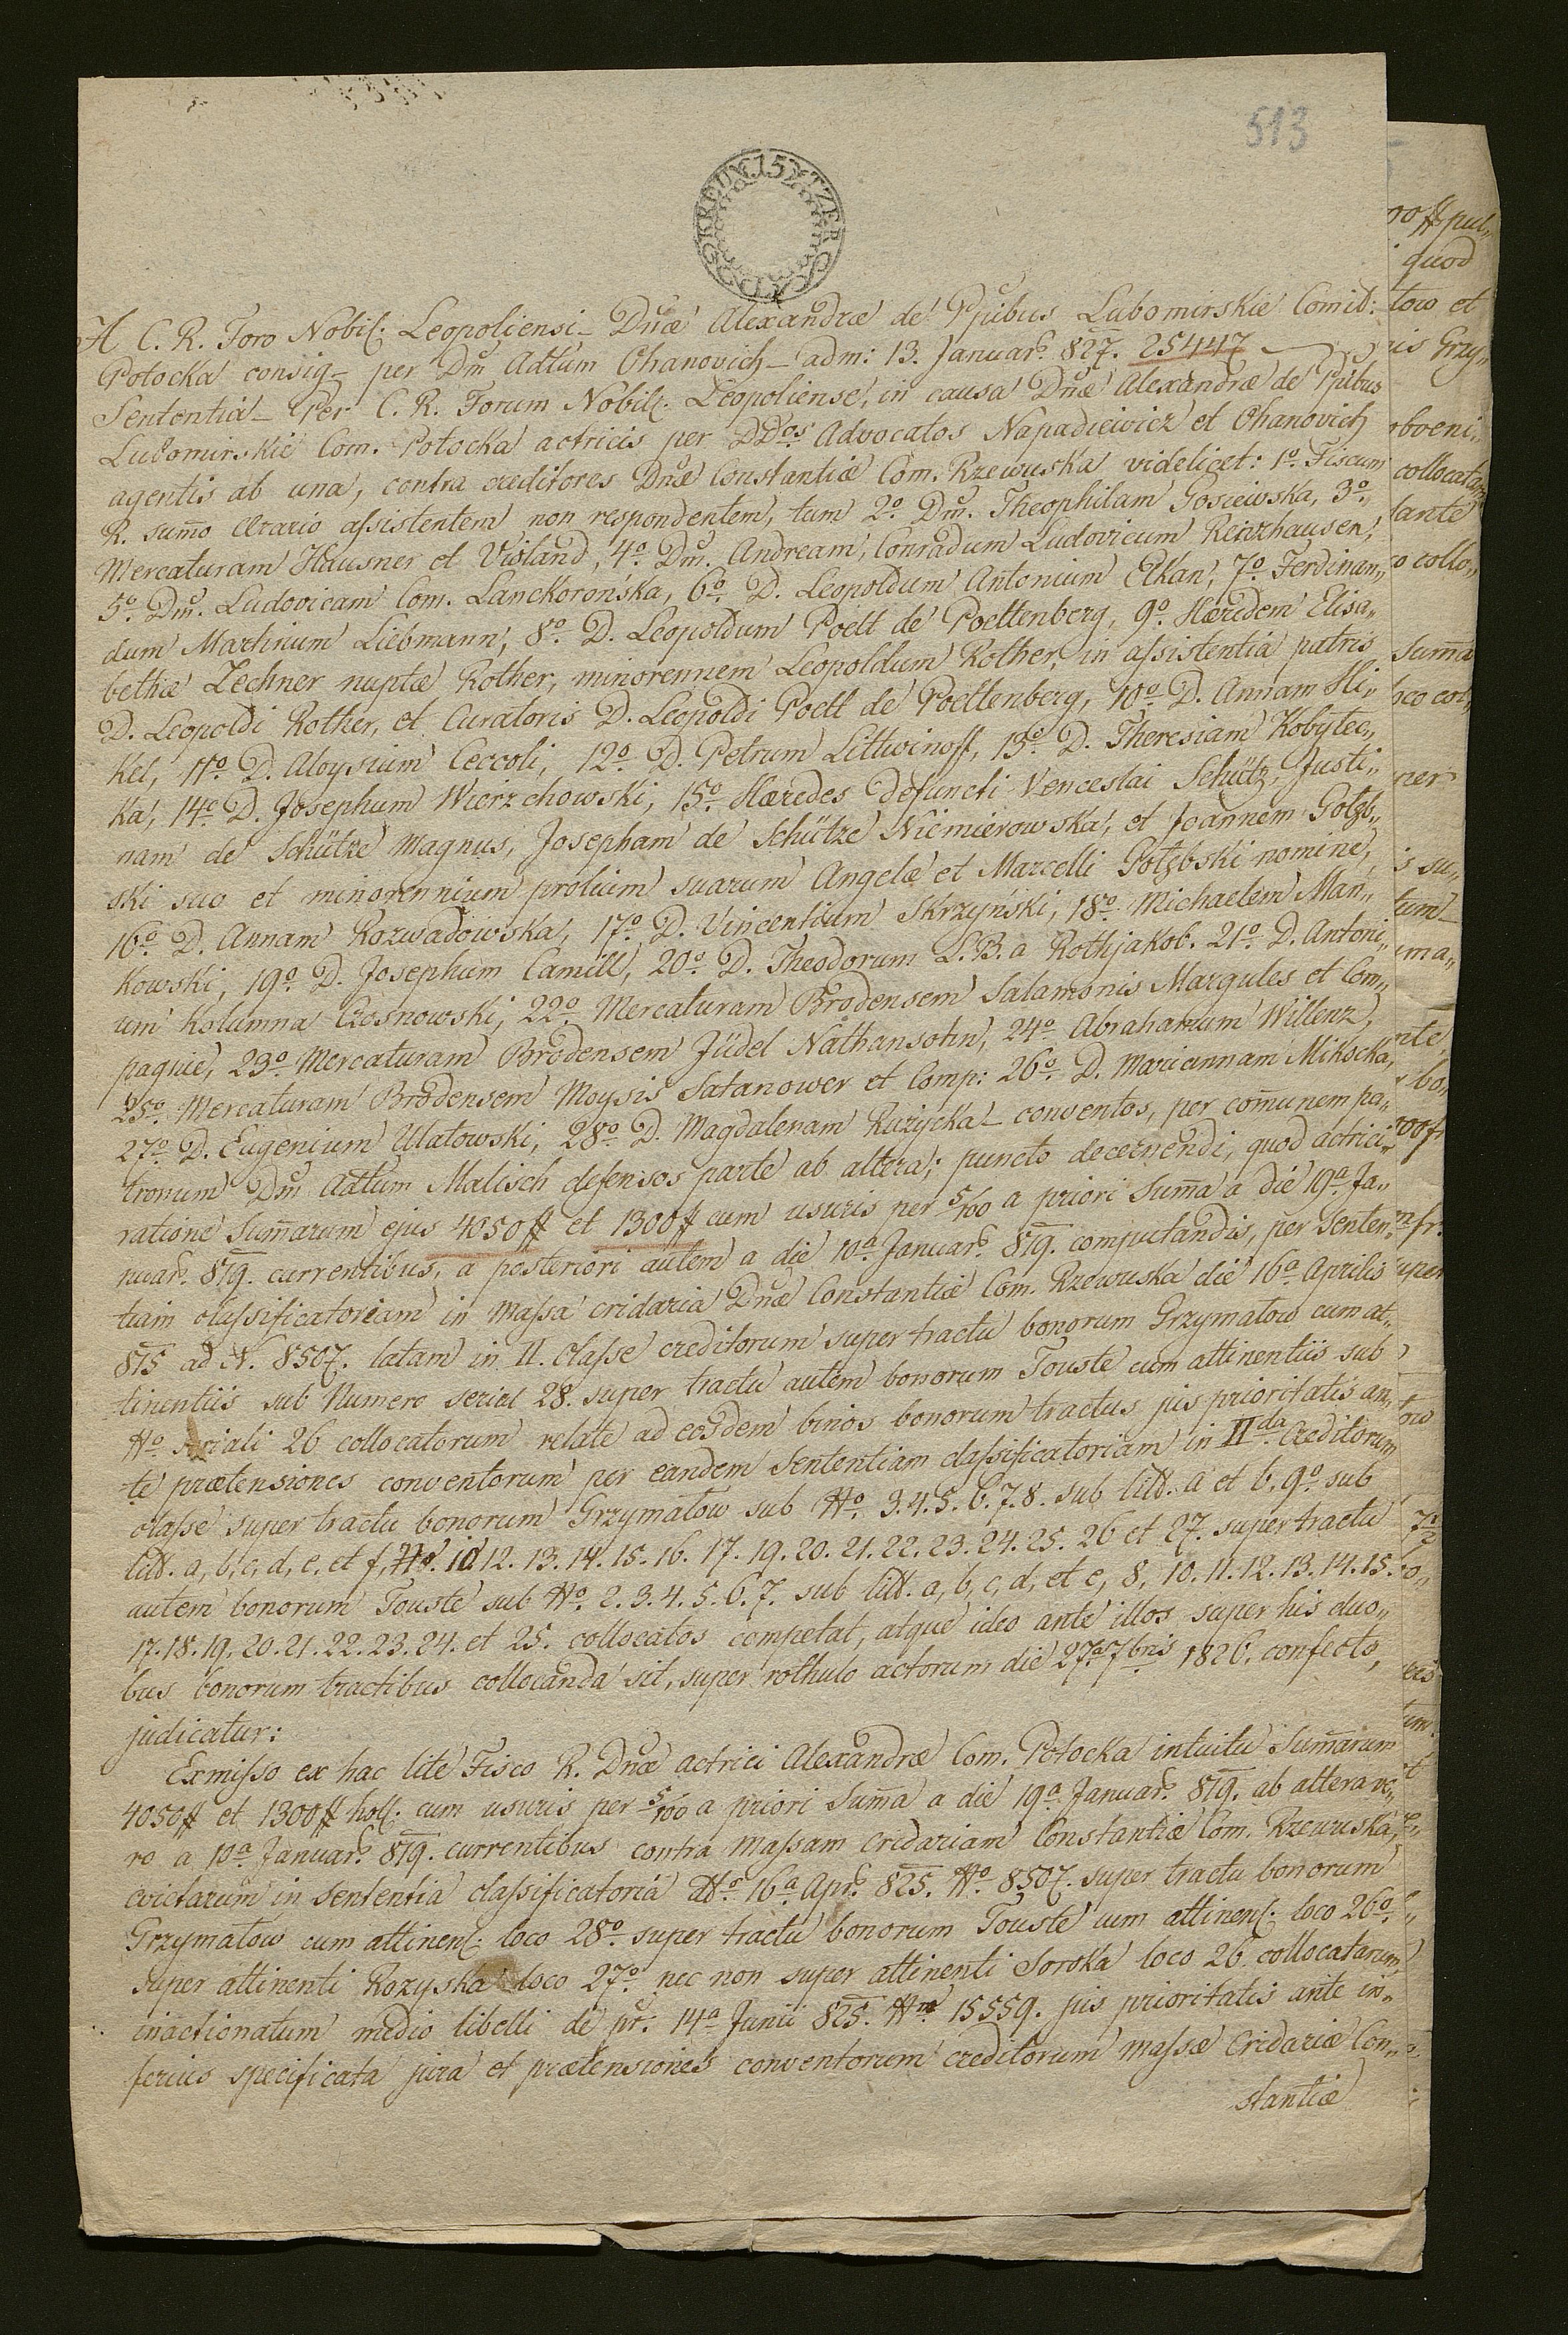 513
15 KREUTZER CARDOS
A C. R. Foro Nobil. Leopoliensi – Dnæ Alexandræ de Ppibus Lubomirskie Comit:
Potocka consig – per Dm Adtum Ohanovich – adm: 13. Januar. 827. 25447
Sententia – Per C. R. Forum Nobil. Leopoliense, in causa Dnæ Alexandræ de Ppibus
Lubomirskie Com. Potocka actricis per DDos Advocatos Napadiewicz et Ohanovich
agentis ab una, contra creditores Dnæ Constantiæ Com. Rzewuska videlicet: 1o. Fiscum
R. sumo Ærario assistentem non respondentem, tum 2o. Dm. Theophilam Gosiewska, 3o.
Mercaturam Hausner et Violand, 4o. Dm. Andream, Conradum Ludovicum Reizhausen,
5o. Dm. Ludovicam Com. Lanckorońska, 6o. D. Leopoldum Antonium Elkan, 7o. Ferdinan„
dum Martinum Liebmann, 8o. D. Leopoldum Poelt de Poeltenberg, 9o. Hæredem Elisa„
bethæ Lechner nuptæ Rother, minorennem Leopoldum Rother, in assistentia patris
D. Leopoldi Rother, et Curatoris D. Leopoldi Poelt de Poeltenberg, 10o. D. Annam Hi„
kel, 11o. D. Aloysium Ceccoli, 12o. D. Petrum Littwinoff, 13o. D. Theresiam Kobyłec„
ka, 14o. D. Josephum Wierzchowski, 15o. Hæredes defuncti Venceslai Schütz, Justi„
nam de Schütze Magnus, Josepham de Schütze Niemierowska, et Joannem Gołęb„
ski suo et minorennium prolium suarum Angelæ et Marcelli Gołębski nomine,
16o. D. Annam Rozwadowska, 17o. D. Vincentium Skrzyński, 18o. Michaelem Man„
kowski, 19o. D. Josephum Camill, 20o. D. Theodorum L. B. a Rothjakob. 21o. D. Antoni„
um Kolumna Czosnowski, 22o. Mercaturam Brodensem Salamonis Margules et Com„
pagnie, 23o. Mercaturam Brodensem Jüdel Nathansohn, 24o. Abrahamum Willenz,
25o. Mercaturam Brodensem Moysis Satanower et Comp: 26o. D. Mariannam Mikocka,
27o. D. Eugenium Ulatowski, 28o. D. Magdalenam Ruzycka – conventos, per comunem pa„
tronum Dm Adtum Malisch defensos parte ab altera; puncto decernendi, quod actrici
ratione Sumarum ejus 4050 ff et 1300 ff cum usuris per 5/100 a priori Suma a die 19a. Ja„
nuar. 819. currentibus, a posteriori autem a die 10a. Januar. 819. computandis, per Senten„
tiam classificatoriam in massa cridaria Dnæ Constantiæ Com. Rzewuska die 16a. Aprilis
815 ad N. 8507. latam in II. Classe creditorum super tractu bonorum Grzymałow cum at„
tinentiis sub Numero serial 28. super tractu autem bonorum Touste cum attinentiis sub
No. seriali 26 collocatorum relate ad eosdem binos bonorum tractus jus prioritatis an„
te prætensiones conventorum per eandem Sententiam classificatoriam in IIda. Creditorum
classe super tractu bonorum Grzymałow sub No. 3. 4. 5. 6. 7. 8. sub litt. a et b. 9o. sub
litt. a, b, c, d, e, et f, No. 10 12. 13. 14. 15. 16. 17. 19. 20. 21. 22. 23. 24. 25. 26 et 27. super tractu
autem bonorum Touste sub No. 2. 3. 4. 5. 6. 7. sub litt. a, b, c, d, et e, 8, 10. 11. 12. 13. 14. 15.
17. 18. 19. 20. 21. 22. 23. 24. et 25. collocatos competat, atque ideo ante illos super his duo„
bus bonorum tractibus collocanda sit, super rothulo actorum die 27a 7bris 1826. confecto,
judicatur:
Exmisso ex hac lite Fisco R. Dnæ actrici Alexandræ Com. Potocka intuitu Sumarum
4050 ff et 1300 ff holl. cum usuris per 5/100 a priori Suma a die 19a. Januar. 819. ab altera ve„
ro a 10a. Januar. 819. currentibus contra massam cridariam Constantiæ Com. Rzewuska,
evictarum in Sententia classificatoria Do. 16a. Apr. 825. No. 8507. super tractu bonorum
Grzymałow cum attinen. loco 28o. super tractu bonorum Touste cum attinen. loco 26o.
super attinenti Rozyska loco 27o. nec non super attinenti Soroka loco 26 collocatarum
inactionatum medio libelli de pr. 14a Junii 825. No 15559. jus prioritatis ante in„
ferius specificata jura et prætensiones conventorum creditorum massæ cridariæ Con„
stantiæ
pul„
quod
tow et
Grzy„
collocatam
collo„
Suma